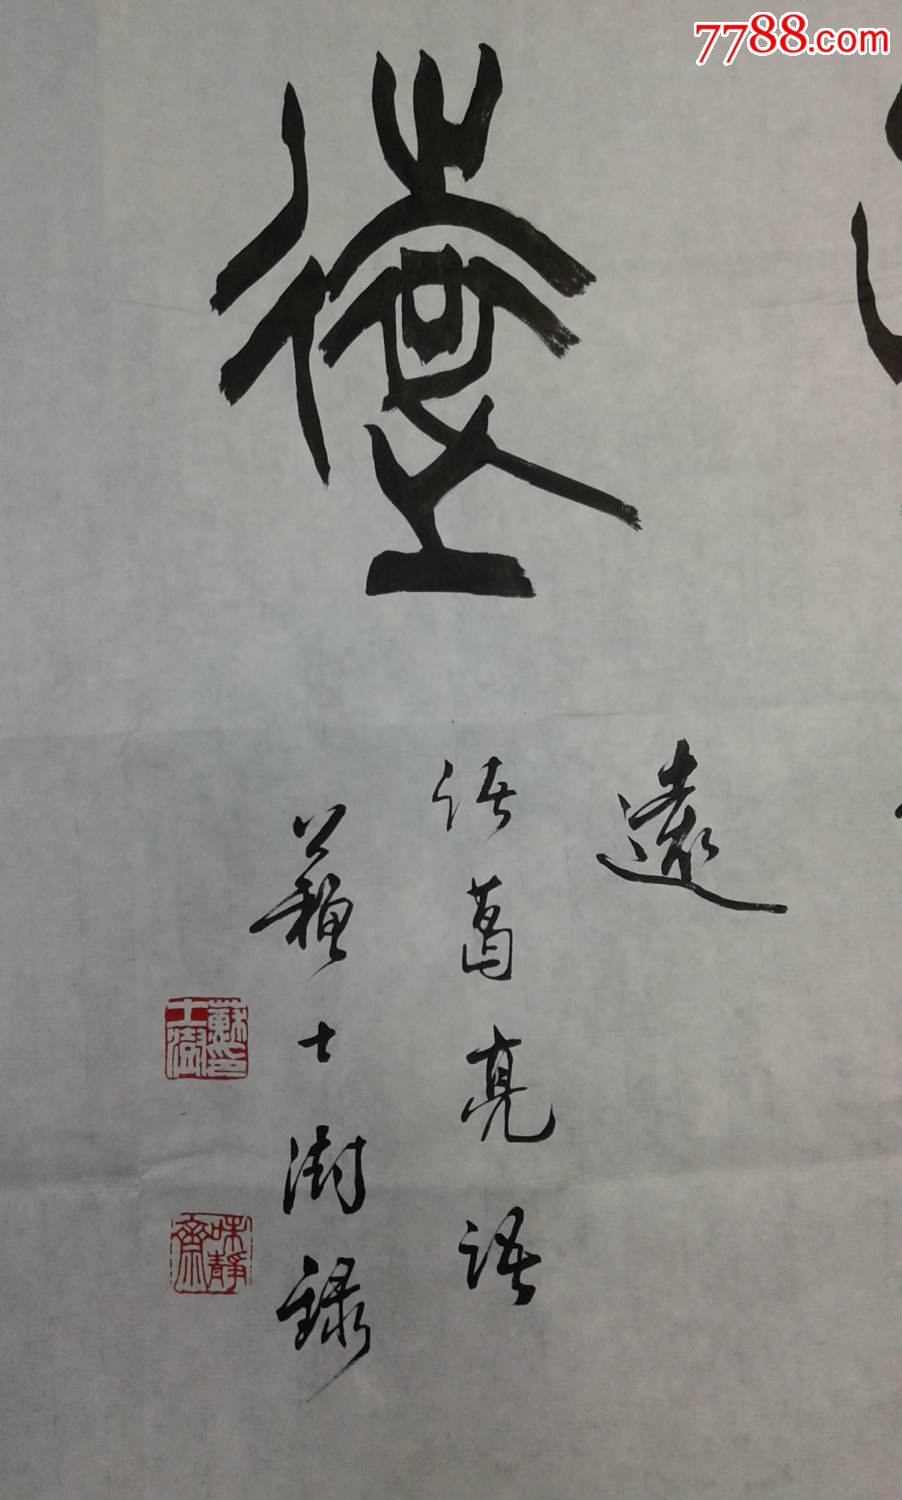 7788.com
遠
德
諸葛亮語
蘇士澍錄
蘇士澍印
味靜齋